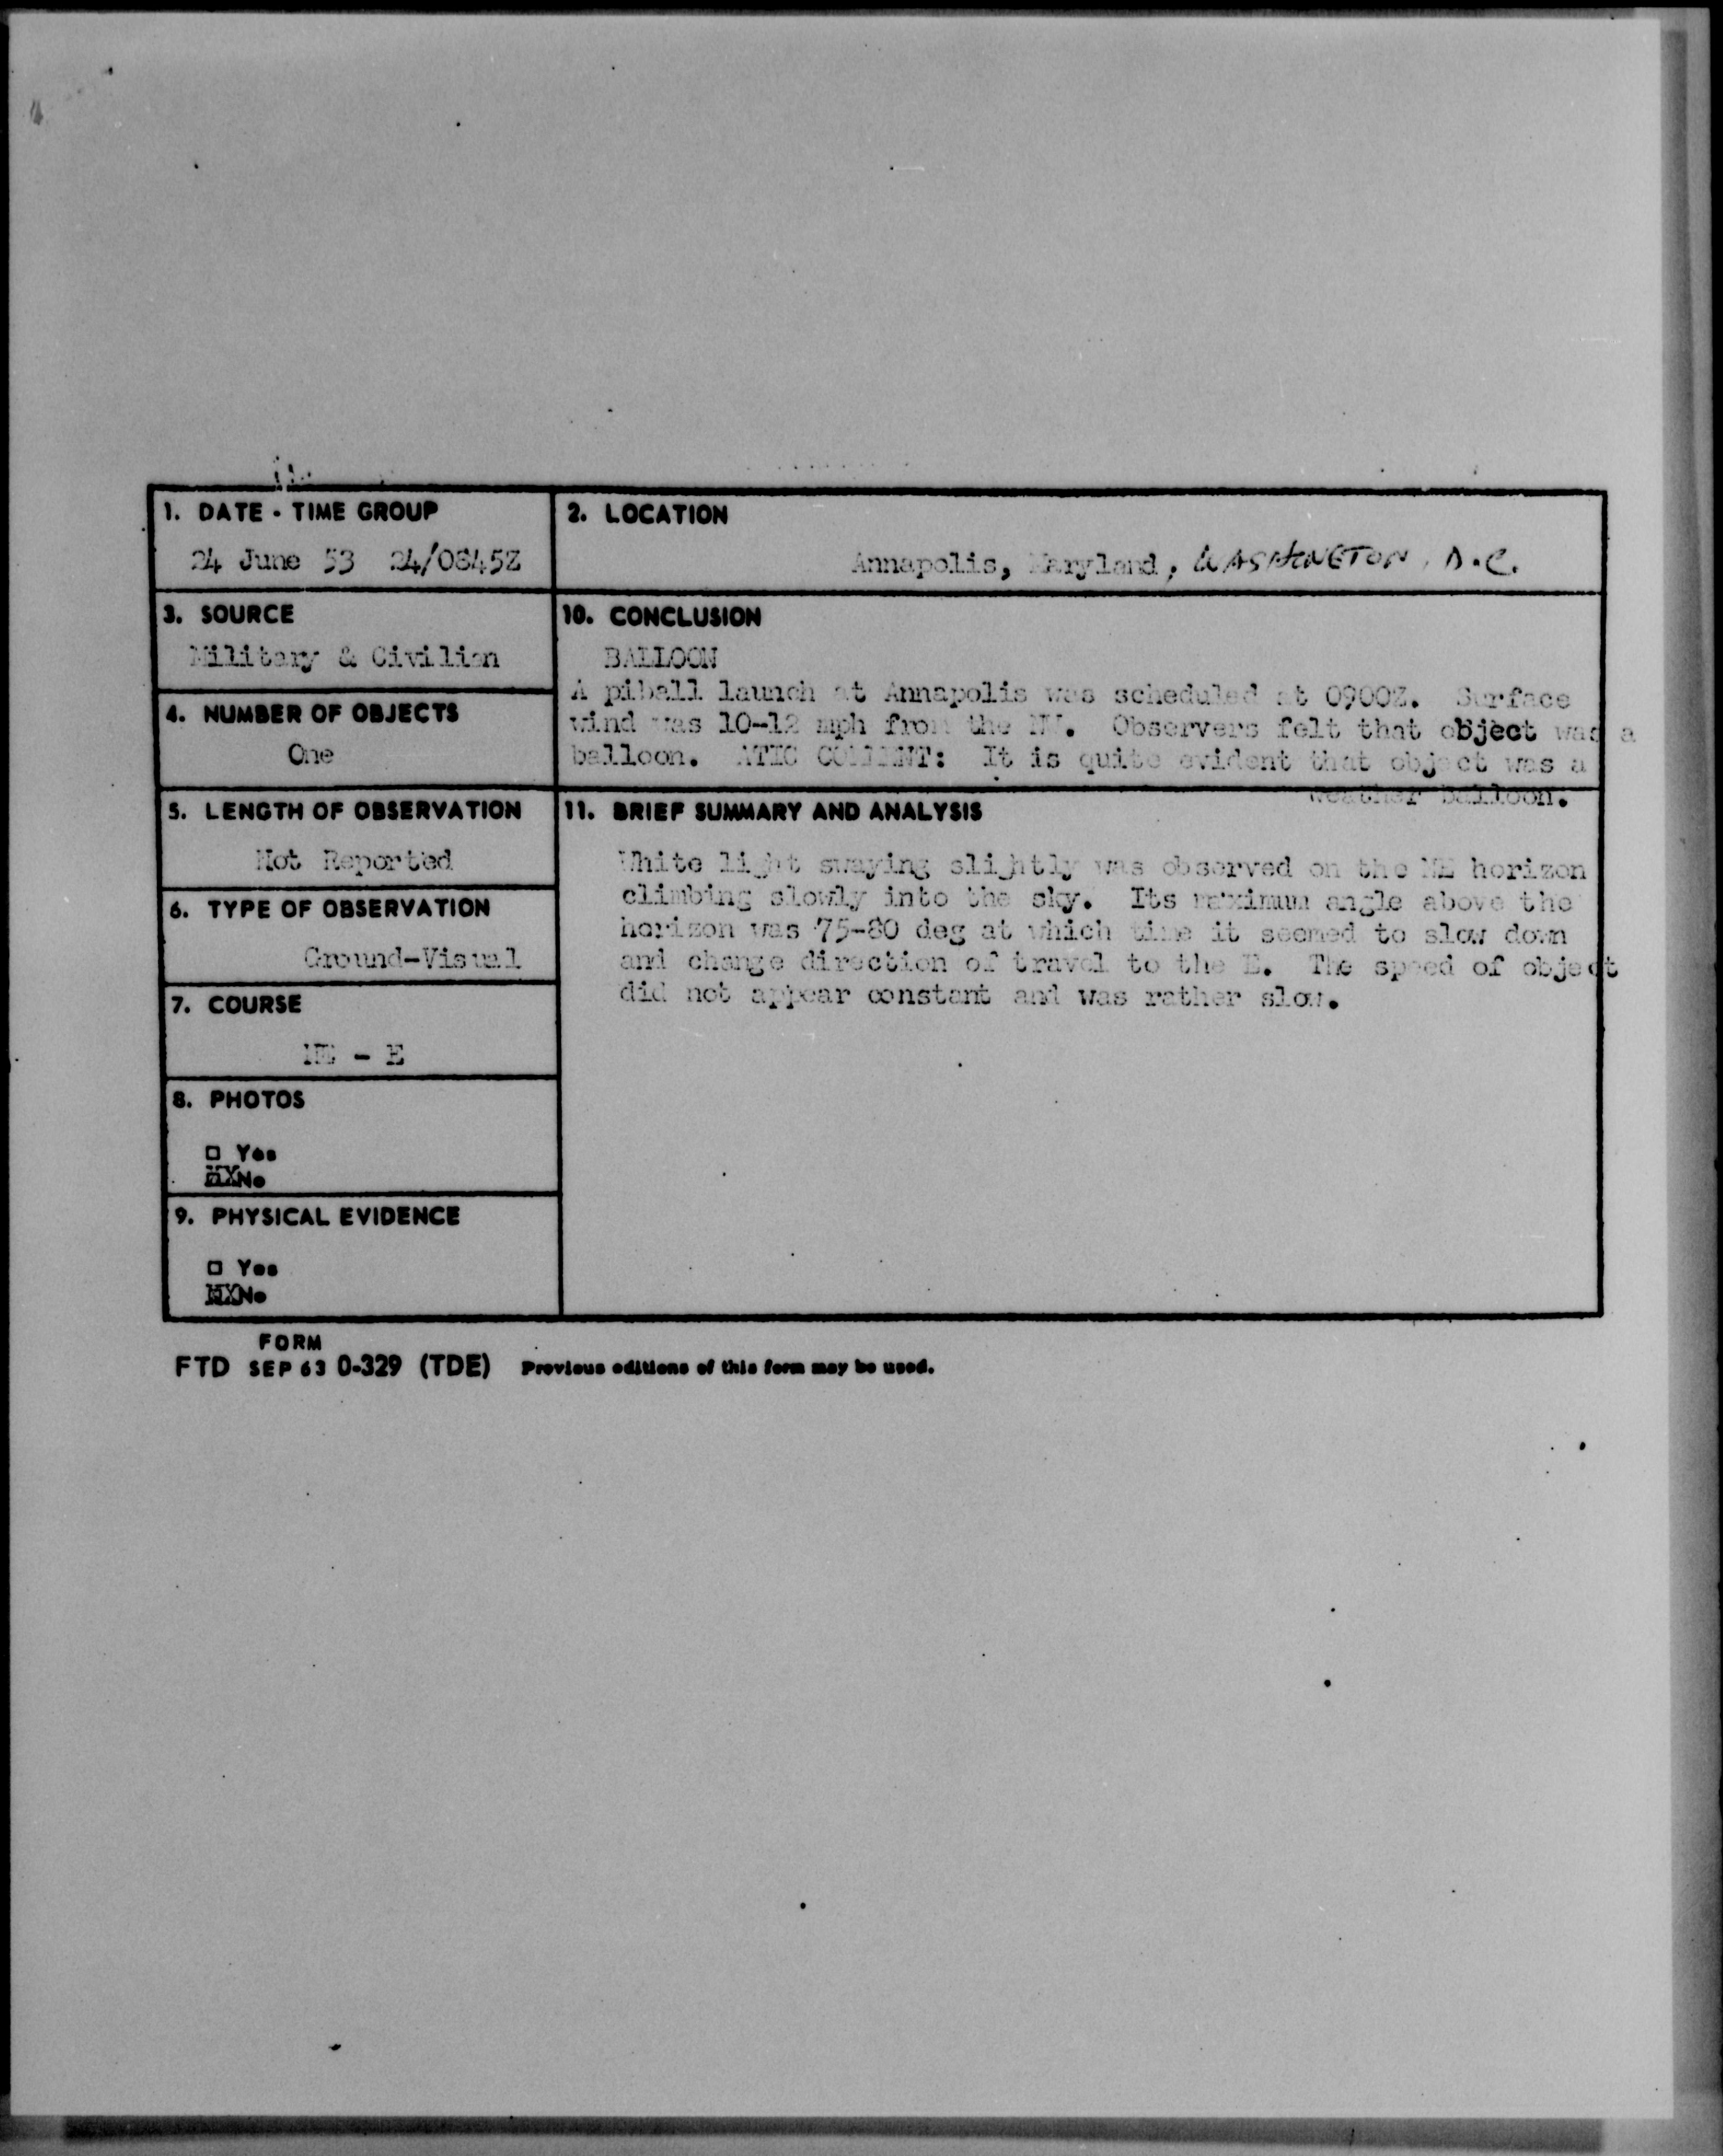 1. DATE - TIME GROUP
24 June 53 24/0845Z
2. LOCATION
Annapolis, Maryland, WASHINGTON, D.C.
3. SOURCE
Military & Civilian
4. NUMBER OF OBJECTS
One
5. LENGTH OF OBSERVATION
Not Reported
6. TYPE OF OBSERVATION
Ground-Visual
7. COURSE
NE - E
8. PHOTOS
☐ Yes
XXNo
9. PHYSICAL EVIDENCE
☐ Yes
XXNo
10. CONCLUSION
BALLOON
A piball launch at Annapolis was scheduled at 0900Z. Surface
wind was 10-12 mph from the NW. Observers felt that object was a
balloon. ATIC COMMENT: It is quite evident that object was a
weather balloon.
11. BRIEF SUMMARY AND ANALYSIS
White light swaying slightly was observed on the NE horizon
climbing slowly into the sky. Its maximum angle above the
horizon was 75-80 deg at which time it seemed to slow down
and change direction of travel to the E. The speed of object
did not appear constant and was rather slow.
FORM
FTD SEP 63 0-329 (TDE) Previous editions of this form may be used.